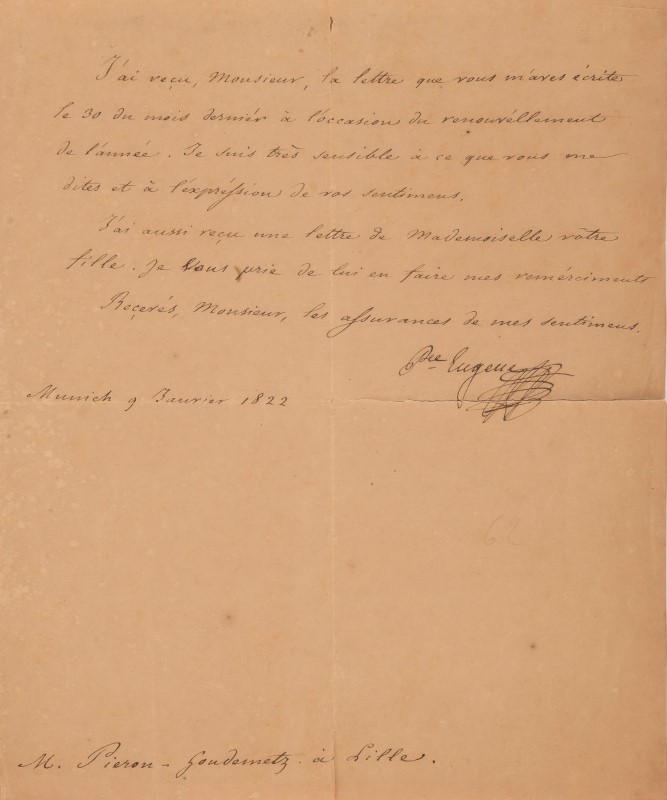 J'ai reçu, Monsieur, la lettre que vous m'avés écrite
le 30 du mois derniér à l'occasion du renouvéllement
de l'année. Je suis très sensible à ce que vous me
dites et à l'expréssion de vos sentimens.
J'ai aussi reçu une lettre de Mademoiselle vôtre
fille. Je Vous prie de lui en faire mes remérciments
Reçevés, Monsieur, les assurances de mes sentimens.
Pce Eugene
Munich 9 Janvier 1822
62
M. Pieron-Goudemetz à Lille.